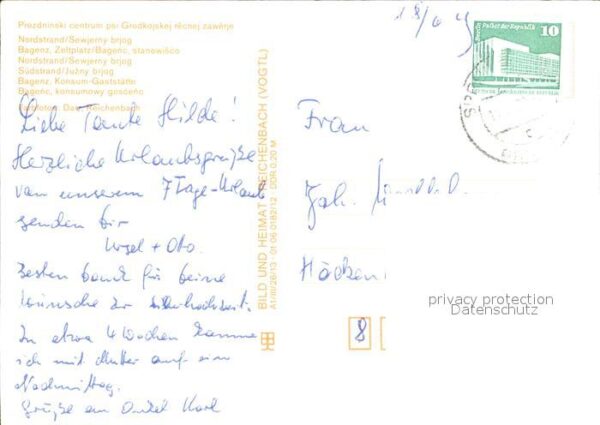 Prozdninski centrum pśi Grodkojskej rěcnej zawěrje
Nordstrand/Sewjerny brjog
Bagenz, Zeltplatz/Bagenc, stanowišćo
Nordstrand/Sewjerny brjog
Südstrand/Južny brjog
Bagenz, Konsum-Gaststätte
Bagenc, konsumowy gosćeńc
Liebe Tante Hilde!
Herzliche Urlaubsgrüße
von unserem 7 Tage-Urlaub
senden Dir
Ursel + Otto.
Besten Dank für Deine
Wünsche zur Silberhochzeit.
In etwa 4 Wochen komme
ich mit Mutter auf ein
Nachmittag.
Grüße an Onkel Karl
BILD UND HEIMAT REICHENBACH (VOGTL)
A1/III/26/13 01 06 0182/12 DDR 0,20 M
Palast der Republik
10
Frau
Joh.
8
privacy protection
Datenschutz